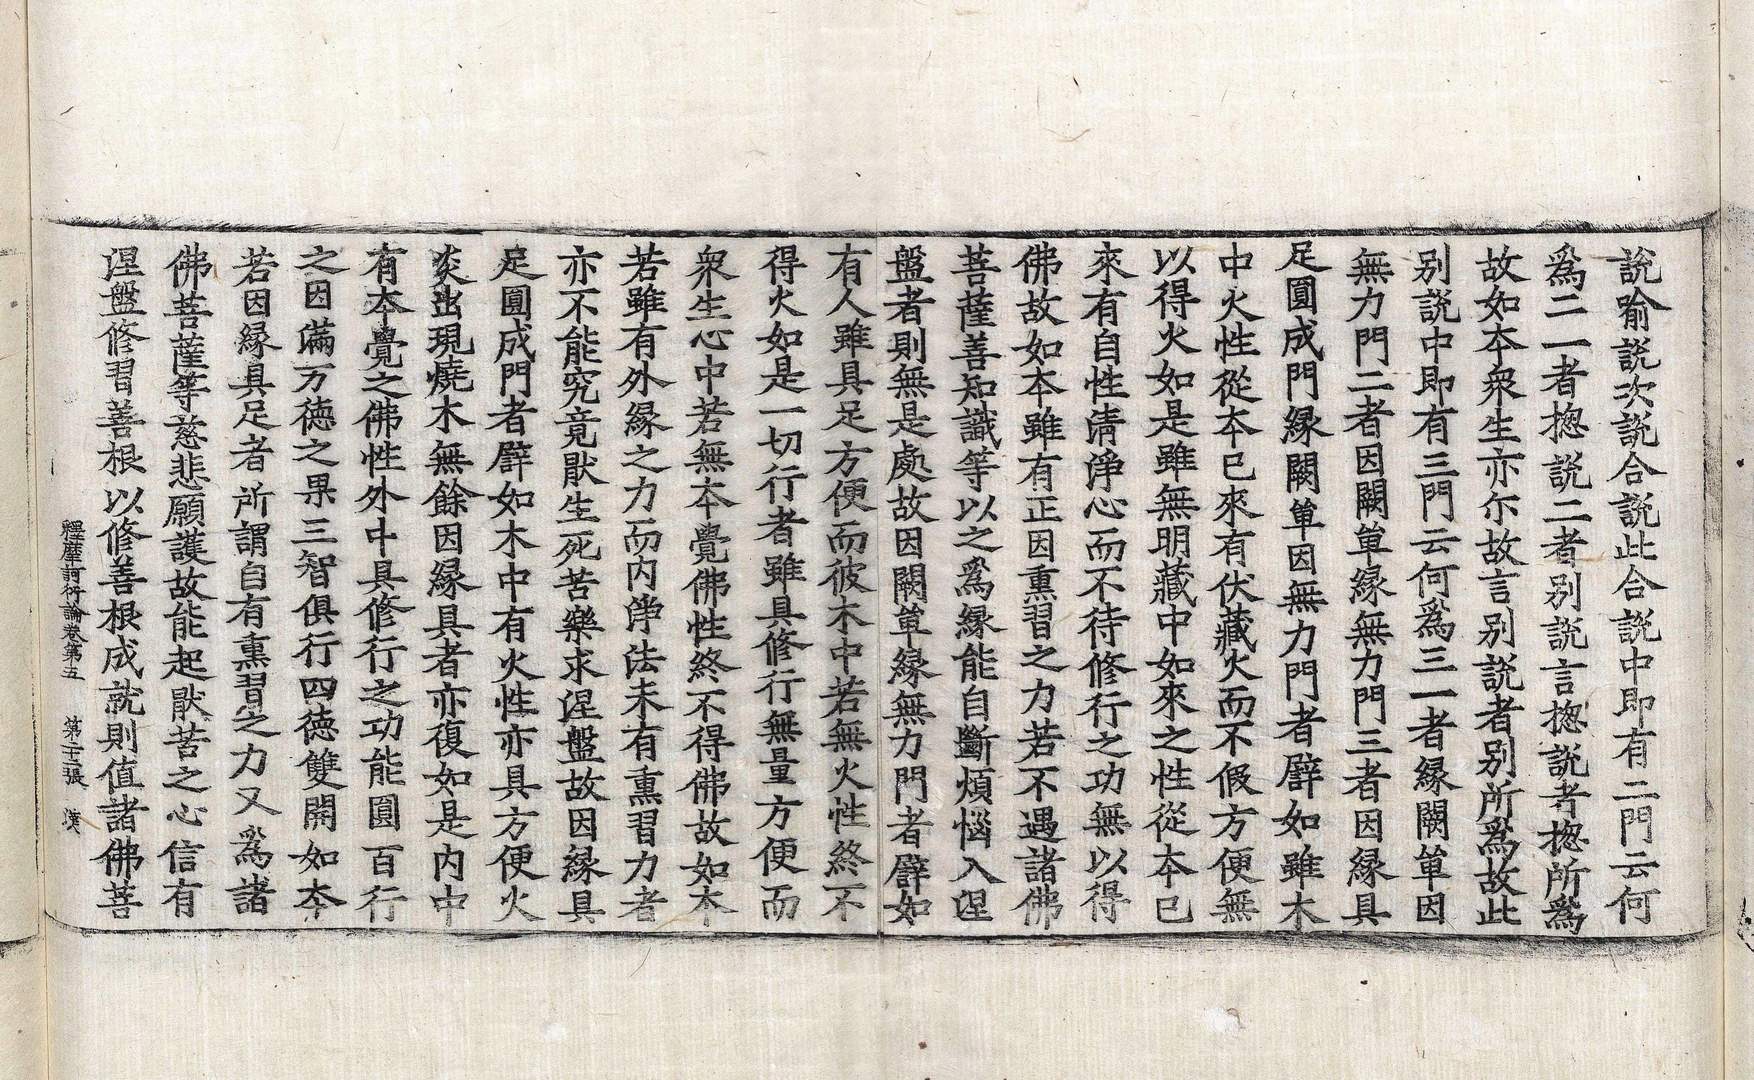 說喻說次說合說此合說中即有二門云何
爲二一者揔說二者別說言揔說者揔所爲
故如本衆生亦尒故言別說者別所爲故此
別說中即有三門云何爲三一者緣闕單因
無力門二者因闕單緣無力門三者因緣具
足圓成門緣闕單因無力門者譬如雖木
中火性從本已來有伏藏火而不假方便無
以得火如是雖無明藏中如來之性從本已
來有自性清淨心而不待修行之功無以得
佛故如本雖有正因熏習之力若不遇諸佛
菩薩善知識等以之爲緣能自斷煩惱入涅
盤者則無是處故因闕單緣無力門者譬如
有人雖具足方便而彼木中若無火性終不
得火如是一切行者雖具修行無量方便而
衆生心中若無本覺佛性終不得佛故如本
若雖有外緣之力而內淨法未有熏習力者
亦不能究竟猒生死苦樂求涅盤故因緣具
足圓成門者譬如木中有火性亦具方便火
炎出現燒木無餘因緣具者亦復如是內中
有本覺之佛性外中具修行之功能圓百行
之因滿万德之果三智俱行四德雙開如本
若因緣具足者所謂自有熏習之力又爲諸
佛菩薩等慈悲願護故能起猒苦之心信有
涅盤修習善根以修善根成就則值諸佛菩
釋摩訶衍論卷第五 第二十二張 漢